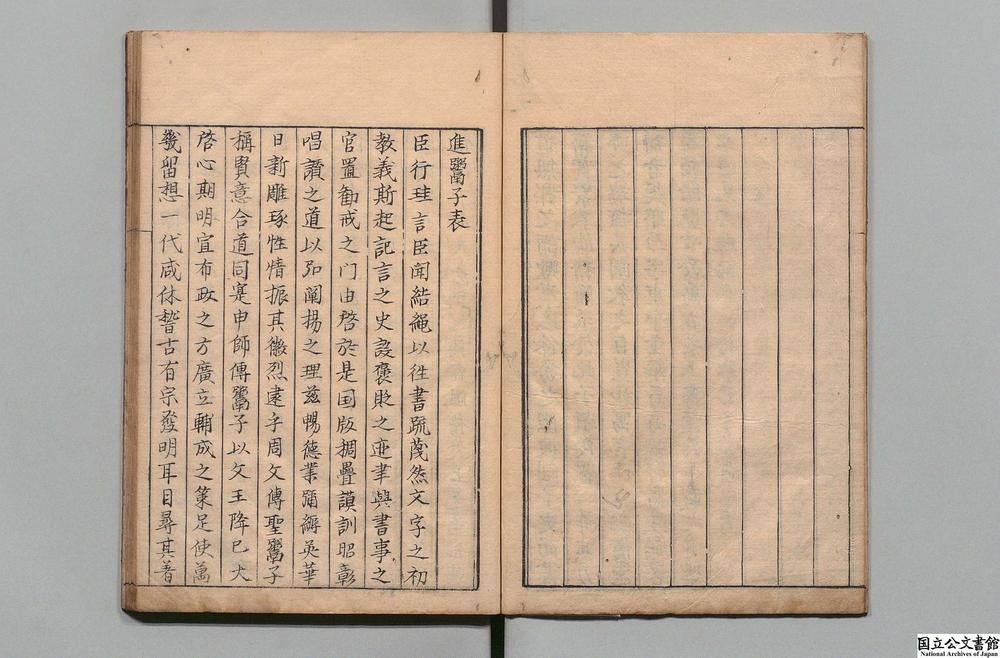 進鬻子表
臣行珪言臣聞結繩以往書疏蔑然文字之初
教義斯起記言之史設褒貶之迹聿興書事之
官置勸戒之門由啓於是国版稠疊謨訓昭彰
唱讚之道以弘闡揚之理兹暢德業彌縟英華
日新雕琢性情振其徽烈逮乎周文傳聖鬻子
稱賢意合道同寔申師傅鬻子以文王降己大
啓心期明宣布政之方廣立輔成之策足使萬
幾留想一代咸休稽古有宗發明耳目尋其著
国立公文書館
National Archives of Japan